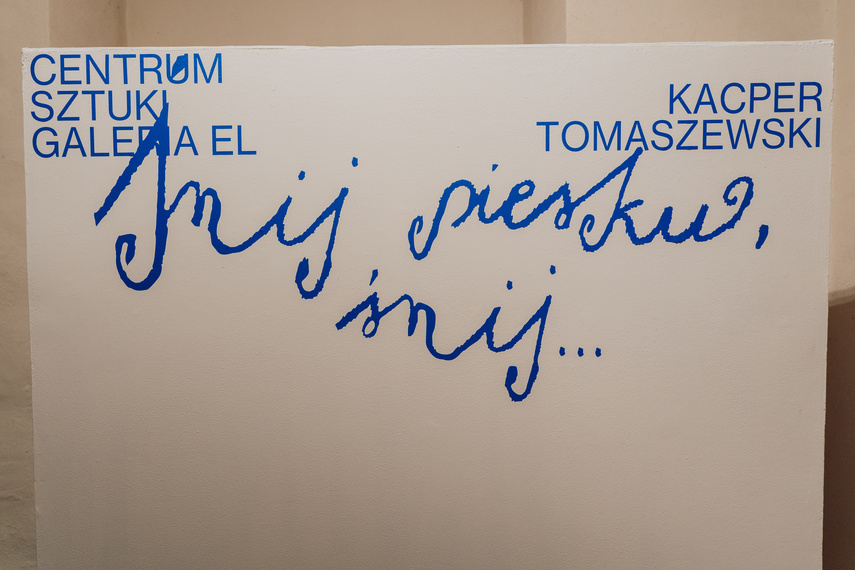 CENTRUM
SZTUKI
GALERIA EL
KACPER
TOMASZEWSKI
Śnij piesku,
śnij...